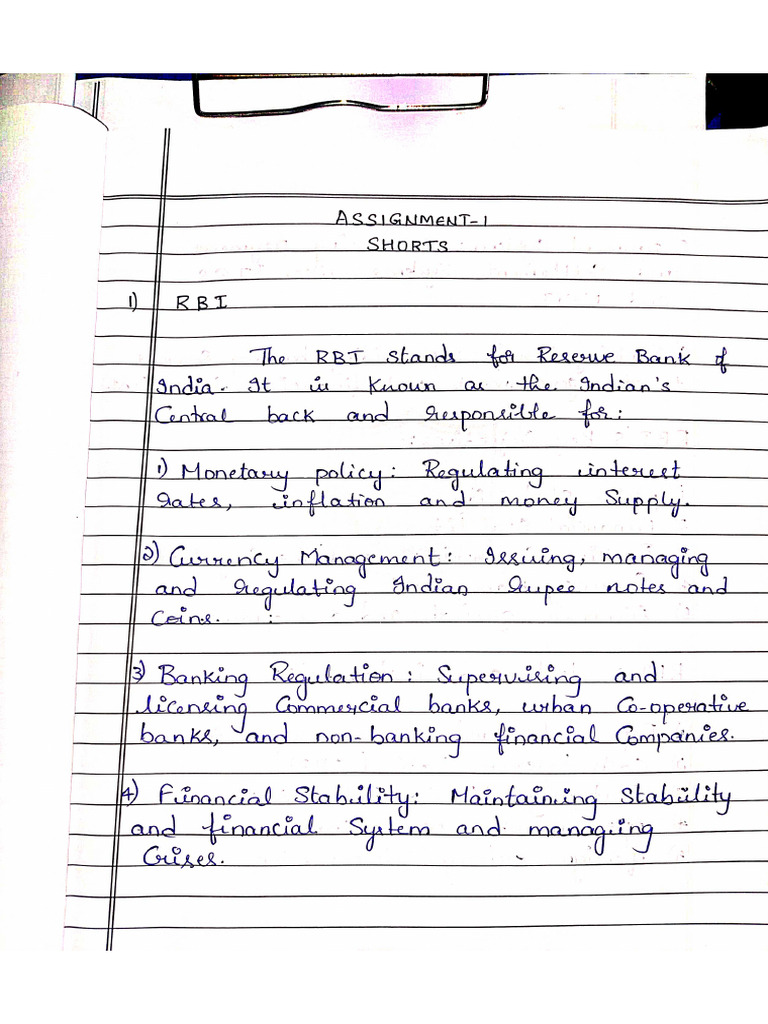 ASSIGNMENT-1
SHORTS
1) RBI
The RBI stands for Reserve Bank of
India. It is known as the Indian's
Central back and responsible for:
1) Monetary policy: Regulating interest
rates, inflation and money Supply.
2) Currency Management: Issuing, managing
and regulating Indian rupee notes and
Coins.
3) Banking Regulation: Supervising and
licensing Commercial banks, urban Co-operative
banks, and non-banking financial Companies.
4) Financial Stability: Maintaining Stability
and financial System and managing
Crises.